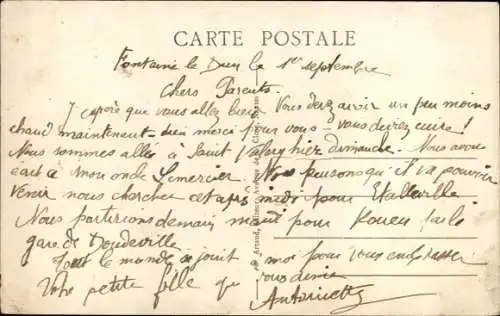 CARTE POSTALE
Fontaine le Dun le 1er septembre
Chers Parents
J'espère que vous allez bien. Vous devez avoir un peu moins
chaud maintenant - dieu merci pour vous - vous devez cuire!
Nous sommes allés à Saint Valery hier dimanche. Nous avons
écrit à mon oncle Lemercier. Nous pensons qu'il va pouvoir
venir nous chercher cet après midi pour Etalleville.
Nous partirons demain matin pour Rouen par la
gare de Doudeville
Tout le monde se joint à moi pour vous embrasser
Votre petite fille qui vous aime
Antoinette